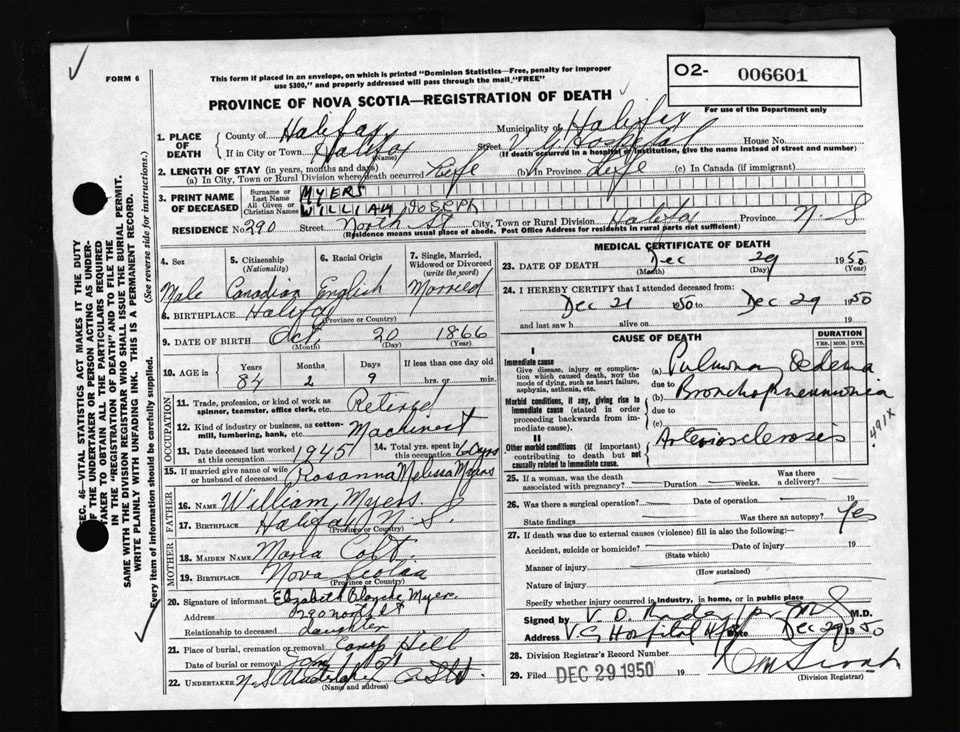 FORM 6
This form if placed in an envelope, on which is printed "Dominion Statistics—Free, penalty for improper
use $300," and properly addressed will pass through the mail "FREE"
O2- 006601
For use of the Department only
PROVINCE OF NOVA SCOTIA—REGISTRATION OF DEATH
SEC. 46—VITAL STATISTICS ACT MAKES IT THE DUTY
OF THE UNDERTAKER OR PERSON ACTING AS UNDER-
TAKER TO OBTAIN ALL THE PARTICULARS REQUIRED
IN THE "REGISTRATION OF DEATH" AND TO FILE THE
SAME WITH THE DIVISION REGISTRAR WHO SHALL ISSUE THE BURIAL PERMIT.
WRITE PLAINLY WITH UNFADING INK. THIS IS A PERMANENT RECORD.
Every item of information should be carefully supplied. (See reverse side for instructions.)
1. PLACE OF DEATH
County of Halifax Municipality of Halifax
If in City or Town Halifax (Name) Street V. G. Hospital House No.
(If death occurred in a hospital or institution, give the name instead of street and number)
2. LENGTH OF STAY (in years, months and days)
(a) In City, Town or Rural Division where death occurred Life (b) In Province Life (c) In Canada (if immigrant)
3. PRINT NAME OF DECEASED
Surname or Last Name MYERS
All Given or Christian Names WILLIAM JOSEPH
RESIDENCE No. 290 Street North St City, Town or Rural Division Halifax Province N.S
(Residence means usual place of abode. Post Office Address for residents in rural parts not sufficient)
4. Sex Male
5. Citizenship (Nationality) Canadian
6. Racial Origin English
7. Single, Married, Widowed or Divorced (write the word) Married
8. BIRTHPLACE Halifax (Province or Country)
9. DATE OF BIRTH Oct. (Month) 20 (Day) 1866 (Year)
10. AGE Years 84 Months 2 Days 9 If less than one day old hrs. or min.
OCCUPATION
11. Trade, profession or kind of work as spinner, teamster, office clerk, etc. Retired
12. Kind of industry or business, as cotton-mill, lumbering, bank, etc. Machinest
13. Date deceased last worked at this occupation 1945
14. Total yrs. spent in this occupation 60 yrs
15. If married give name of wife or husband of deceased Rosanna Melissa Myers
FATHER
16. NAME William Myers.
17. BIRTHPLACE Halifax N.S. (Province or Country)
MOTHER
18. MAIDEN NAME Maria
19. BIRTHPLACE Nova Scotia (Province or Country)
20. Signature of informant Elizabeth Blanche Myers.
Address 290 North St
Relationship to deceased daughter
21. Place of burial, cremation or removal Camp Hill
Date of burial or removal Jan
22. UNDERTAKER N.S. Undertaking (Name and address)
MEDICAL CERTIFICATE OF DEATH
23. DATE OF DEATH Dec (Month) 29 (Day) 1950 (Year)
24. I HEREBY CERTIFY that I attended deceased from:
Dec 21 1950 to Dec 29 1950
and last saw h alive on 19
CAUSE OF DEATH
DURATION YRS. MOS. DYS.
I
Immediate cause
Give disease, injury or complication which caused death, not the mode of dying, such as heart failure, asphyxia, asthenia, etc.
(a) Pulmonary Oedema
due to
Morbid conditions, if any, giving rise to immediate cause (stated in order proceeding backwards from immediate cause).
(b) Bronchopneumonia
due to
(c)
II
Other morbid conditions (if important) contributing to death but not causally related to immediate cause.
Arteriosclerosis
491X
25. If a woman, was the death associated with pregnancy? Duration weeks. Was there a delivery?
26. Was there a surgical operation? Date of operation 19
State findings Was there an autopsy? Yes
27. If death was due to external causes (violence) fill in also the following:
Accident, suicide or homicide? (State which) Date of injury 19
Manner of injury (How sustained)
Nature of injury
Specify whether injury occurred in industry, in home, or in public place
Signed by M.D.
Address V. G Hospital Date Dec 29 1950
28. Division Registrar's Record Number
29. Filed DEC 29 1950 19
(Division Registrar)